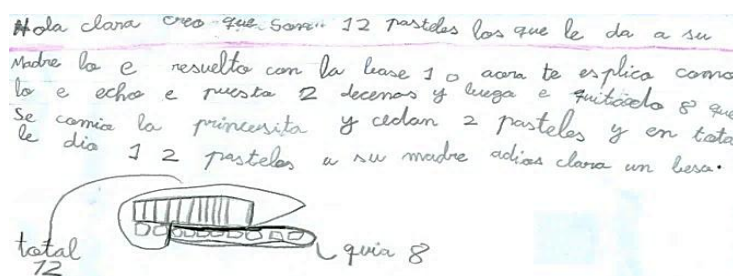 Hola clara creo que son 12 pasteles los que le da a su
Madre lo e resuelto con la base 10 aora te esplico como
lo e echo e puesto 2 decenas y luego e quitado 8 que
Se comio la princesita y cedan 2 pasteles y en total
le dio 12 pasteles a su madre adios clara un beso.
total
12
quia 8